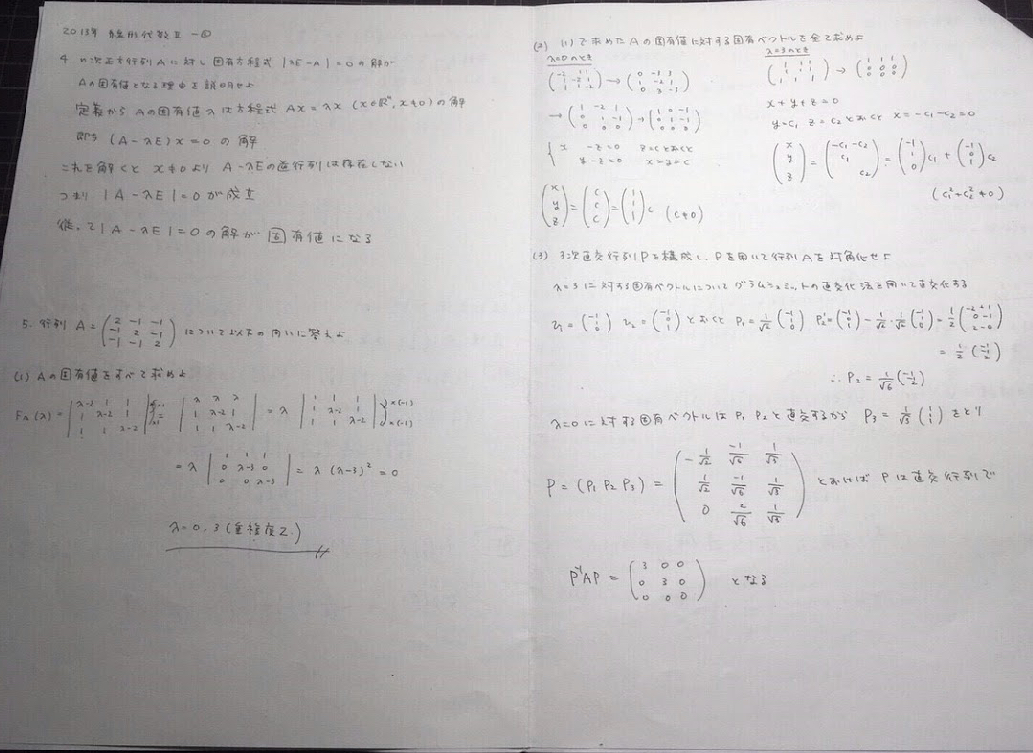 2013年 線形代数Ⅱ-①
4 n次正方行列Aに対し固有方程式 |λE-A|=0の解が
Aの固有値となる理由を説明せよ
定義から Aの固有値λは方程式 Ax=λx (x∈ℝⁿ, x≠0) の解
即ち (A-λE)x=0 の解
これを解くと x≠0より A-λEの逆行列は存在しない
つまり |A-λE|=0が成立
従って |A-λE|=0の解が固有値になる
5. 行列 A=(2 -1 -1 / -1 2 -1 / -1 -1 2) について以下の問いに答えよ
(1) Aの固有値をすべて求めよ
F_A(λ)=|λ-2 1 1 / 1 λ-2 1 / 1 1 λ-2| = |λ λ λ / 1 λ-2 1 / 1 1 λ-2| = λ|1 1 1 / 1 λ-2 1 / 1 1 λ-2| ×(-1) ×(-1)
=λ|1 1 1 / 0 λ-3 0 / 0 0 λ-3| = λ(λ-3)²=0
λ=0, 3 (重複度2.)
(2) (1)で求めたAの固有値に対する固有ベクトルを全て求めよ
λ=0のとき
(-2 1 1 / 1 -2 1 / 1 1 -2) → (0 -3 3 / 1 -2 1 / 0 3 -3)
→ (1 -2 1 / 0 1 -1 / 0 0 0) → (1 0 -1 / 0 1 -1 / 0 0 0)
{ x -z=0 z=cとおくと
y-z=0 x=y=c
(x / y / z)=(c / c / c)=(1 / 1 / 1)c (c≠0)
λ=3のとき
(1 1 1 / 1 1 1 / 1 1 1) → (1 1 1 / 0 0 0 / 0 0 0)
x+y+z=0
y=c₁ z=c₂とおくと x=-c₁-c₂=0
(x / y / z)=(-c₁-c₂ / c₁ / c₂)=(-1 / 1 / 0)c₁+(-1 / 0 / 1)c₂
(c₁²+c₂²≠0)
(3) 3次直交行列Pを構成し、Pを用いて行列Aを対角化せよ
λ=3に対する固有ベクトルについてグラムシュミットの直交化法を用いて直交化する
v₁=(-1 / 1 / 0) v₂=(-1 / 0 / 1) とおくと P₁=1/√2(-1 / 1 / 0) P₂'=(-1 / 0 / 1)-1/√2・1/√2(-1 / 1 / 0)=1/2(-2+1 / 0-1 / 2-0)
=1/2(-1 / -1 / 2)
∴P₂=1/√6(-1 / -1 / 2)
λ=0に対する固有ベクトルは P₁ P₂と直交するから P₃=1/√3(1 / 1 / 1)をとり
P=(P₁ P₂ P₃)=(-1/√2 -1/√6 1/√3 / 1/√2 -1/√6 1/√3 / 0 2/√6 1/√3) とおけば Pは直交行列で
P⁻¹AP=(3 0 0 / 0 3 0 / 0 0 0) となる